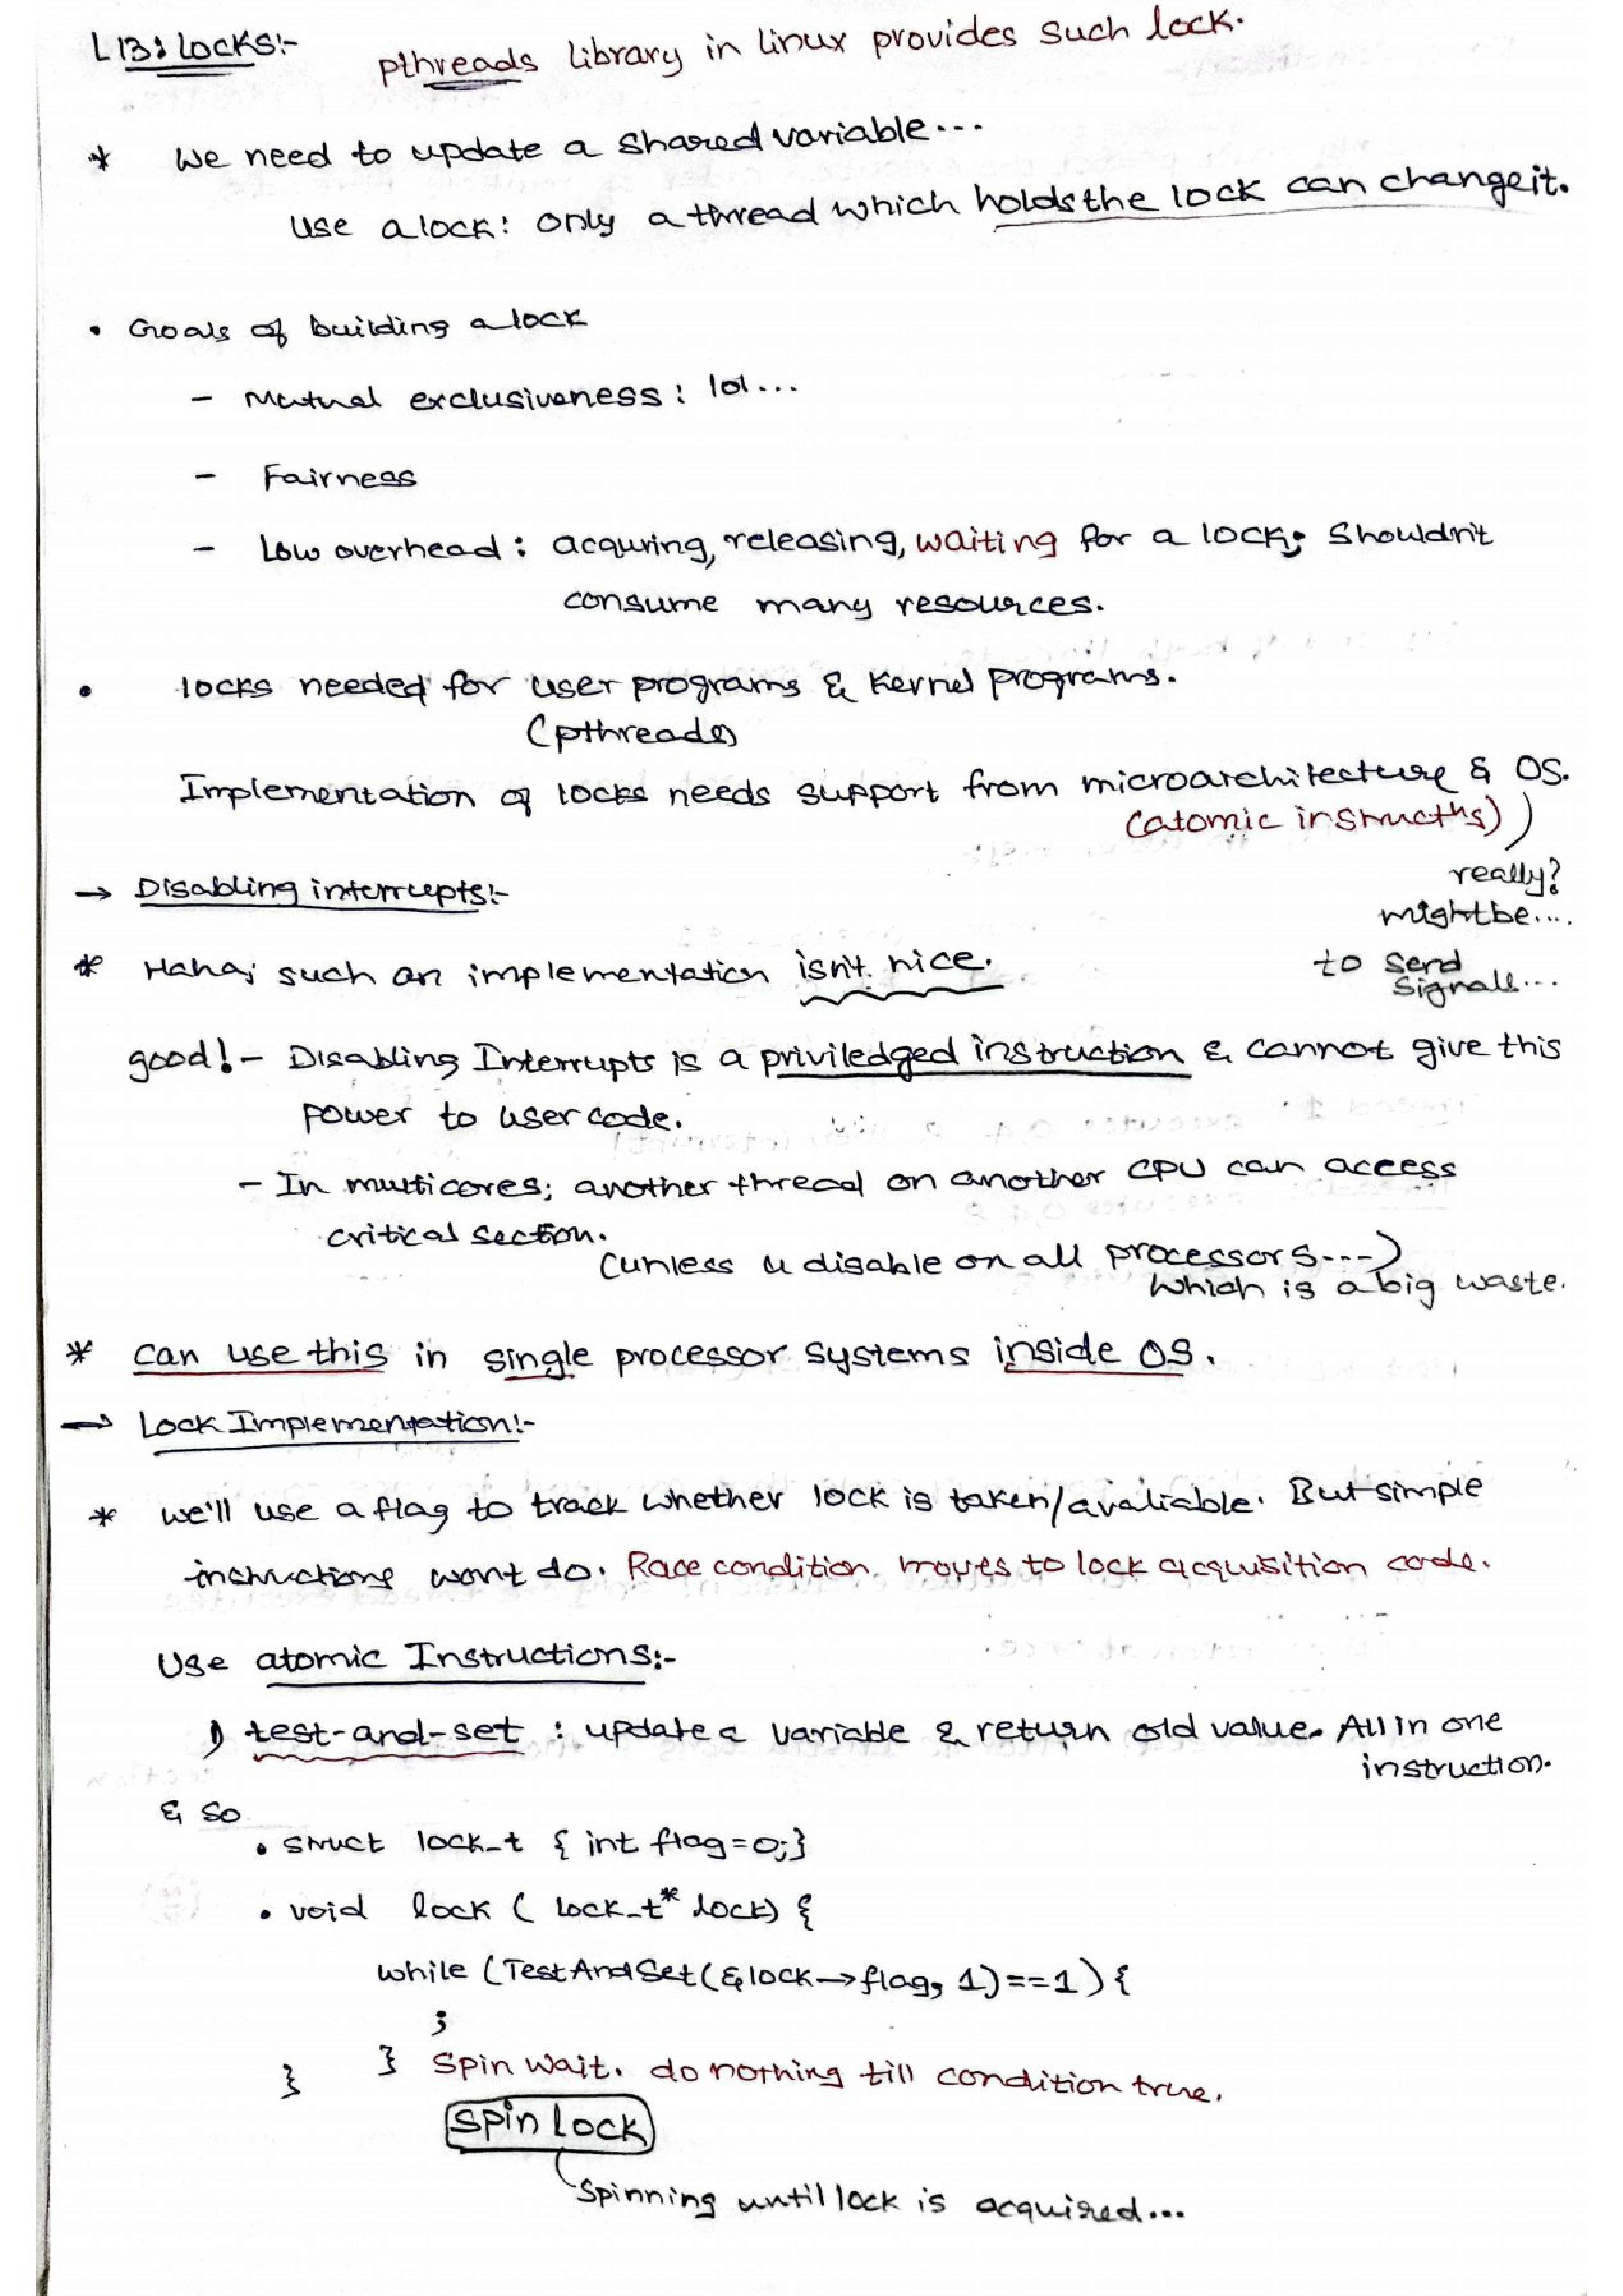 L13: Locks:-
pthreads library in linux provides such lock.
* We need to update a shared variable...
Use a lock: only a thread which holds the lock can change it.
• Goals of building a lock
- Mutual exclusiveness: lol...
- Fairness
- Low overhead: acquring, releasing, waiting for a lock; shouldn't
consume many resources.
• locks needed for user programs & Kernel programs.
(pthreads)
Implementation of locks needs support from microarchitecture & OS.
(atomic instructns) )
really?
might be....
to send
signals...
→ Disabling interrupts:-
* Haha; such an implementation isn't nice.
good! - Disabling Interrupts is a priviledged instruction & cannot give this
power to user code.
- In multicores; another thread on another CPU can access
critical section.
(unless u disable on all processors...)
which is a big waste.
* can use this in single processor systems inside OS.
→ Lock Implementation:-
* we'll use a flag to track whether lock is taken/avaliable. But simple
instructions wont do. Race condition moves to lock acquisition code.
Use atomic Instructions:-
1) test-and-set : update a variable & return old value. All in one
instruction.
& so
• struct lock_t { int flag=0;}
• void lock ( lock_t* lock) {
while (TestAndSet(&lock→flag, 1)==1) {
;
} spin wait. do nothing till condition true.
}
Spin lock
Spinning until lock is acquired...